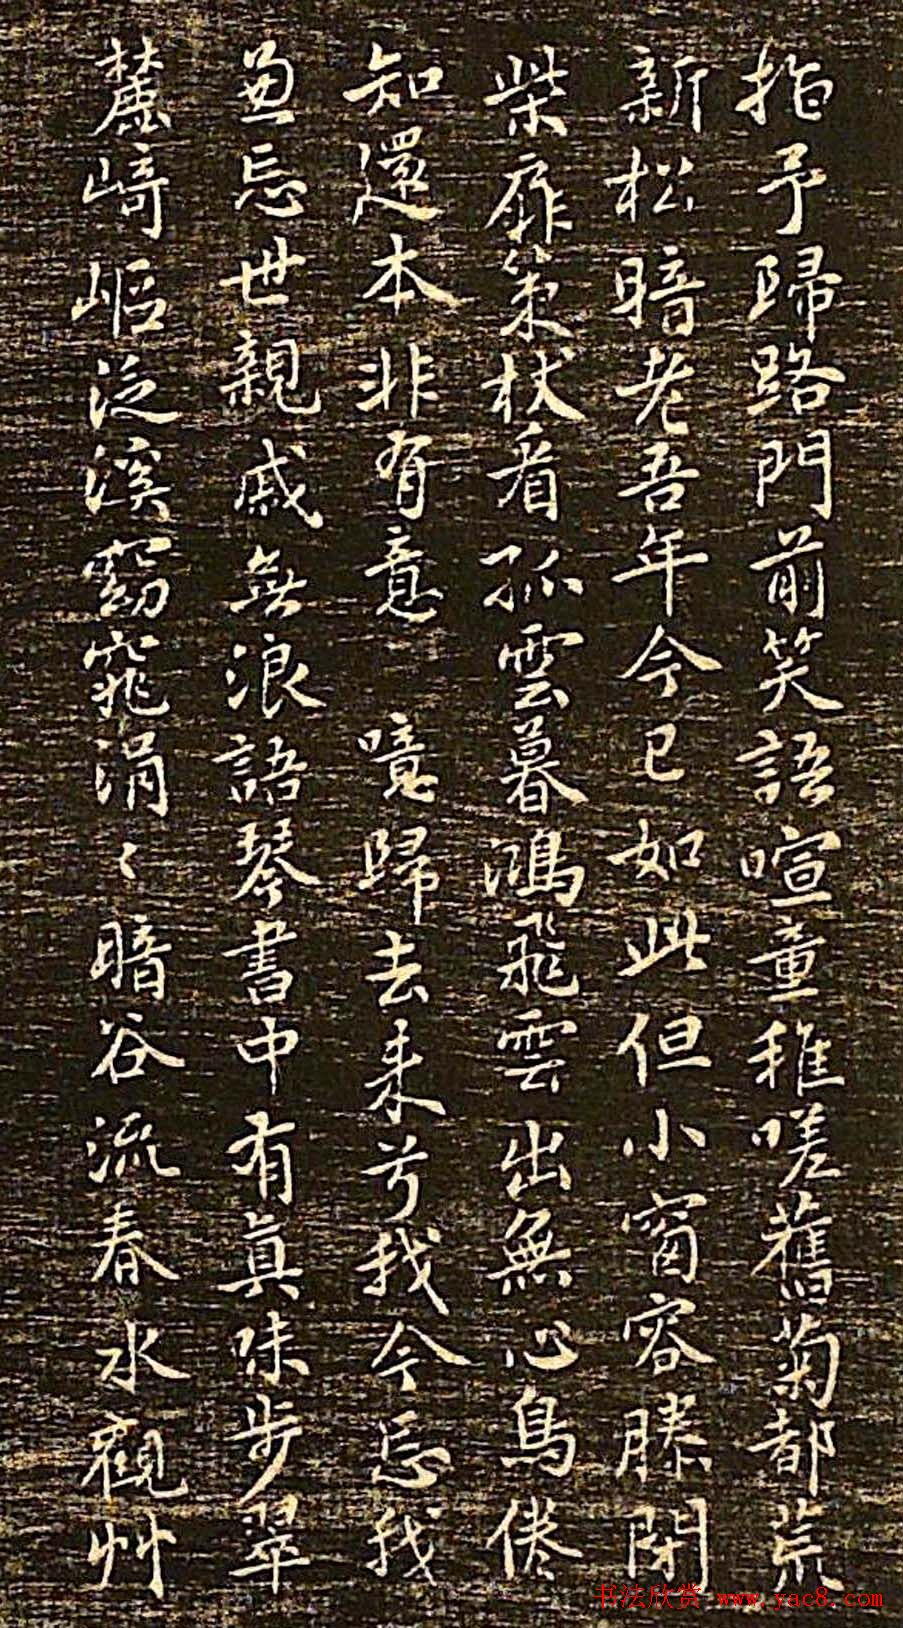 指予歸路門前笑語喧童稚嗟舊菊都荒
新松暗老吾年今已如此但小窗容膝閉
柴扉策杖看孤雲暮鴻飛雲出無心鳥倦
知還本非有意 噫歸去来兮我今忘我
兼忘世親戚無浪語琴書中有真味步翠
麓崎嶇泛溪窈窕涓〻暗谷流春水觀艸
书法欣赏 www.yac8.com